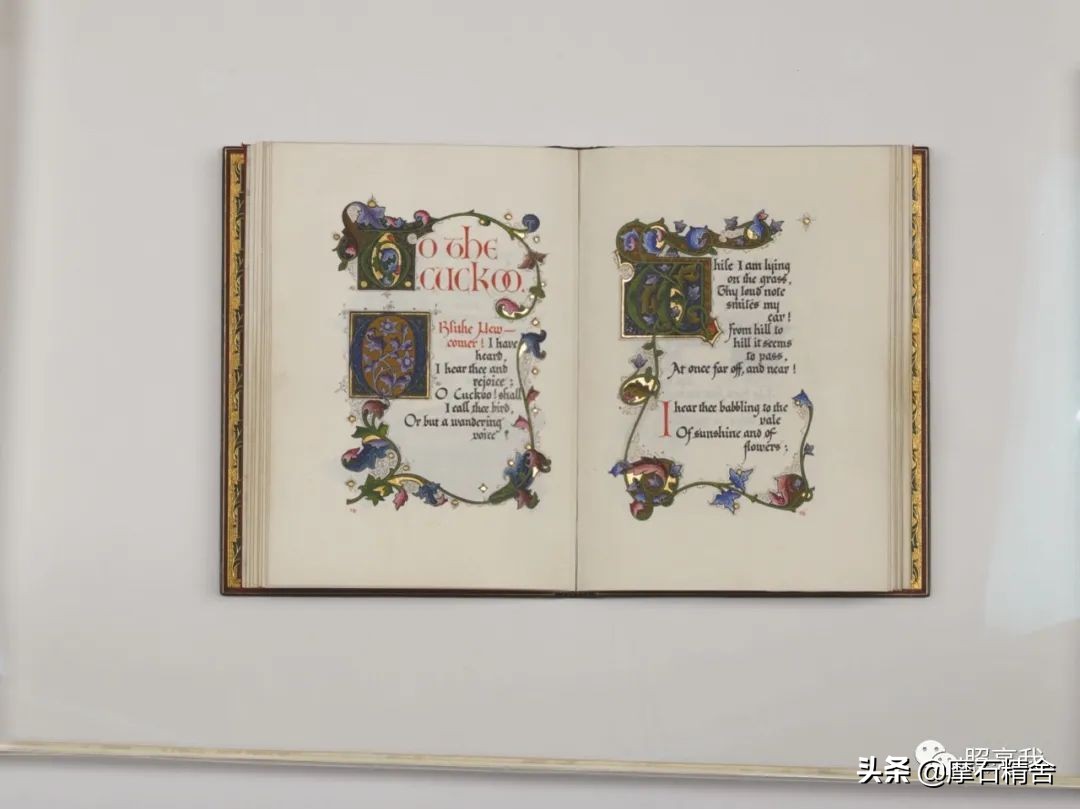 To the
Cuckoo.
O Blithe New-
comer! I have
heard,
I hear thee and
rejoice;
O Cuckoo! shall
I call thee bird,
Or but a wandering
voice?
While I am lying
on the grass,
Thy loud note
smites my
ear!
From hill to
hill it seems
to pass,
At once far off, and near!
I hear thee babbling to the
vale
Of sunshine and of
flowers;
照亮我
头条 @摩石精舍